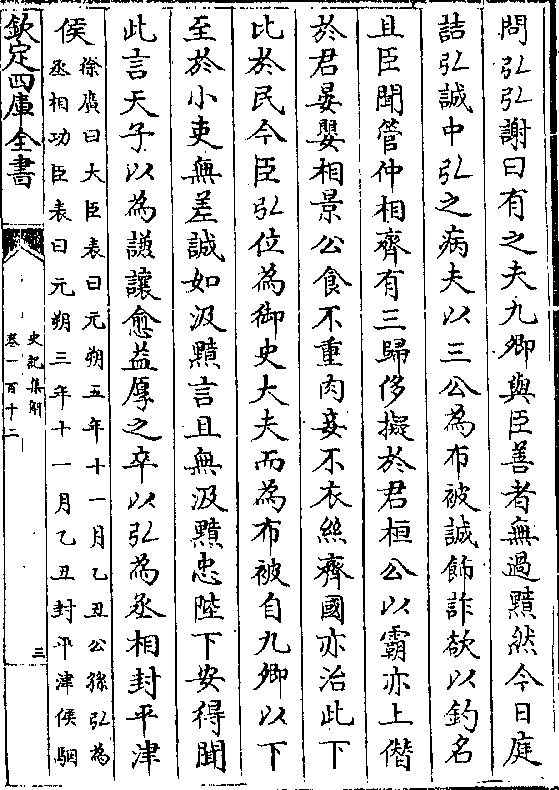 問弘弘謝曰有之夫九卿與臣善者無過黯然今日庭
詰弘誠中弘之病夫以三公為布被誠飾詐欲以釣名
且臣聞管仲相齊有三歸侈擬於君桓公以霸亦上僭
於君晏嬰相景公食不重肉妾不衣絲齊國亦治此下
比於民今臣弘位為御史大夫而為布被自九卿以下
至於小吏無差誠如汲黯言且無汲黯忠陛下安得聞
此言天子以為謙讓愈益厚之卒以弘為丞相封平津
侯
徐廣曰大臣表曰元朔五年十一月乙丑公孫弘為
丞相功臣表曰元朔三年十一月乙丑封平津侯駰
欽定四庫全書
史記集解
卷一百十二
三